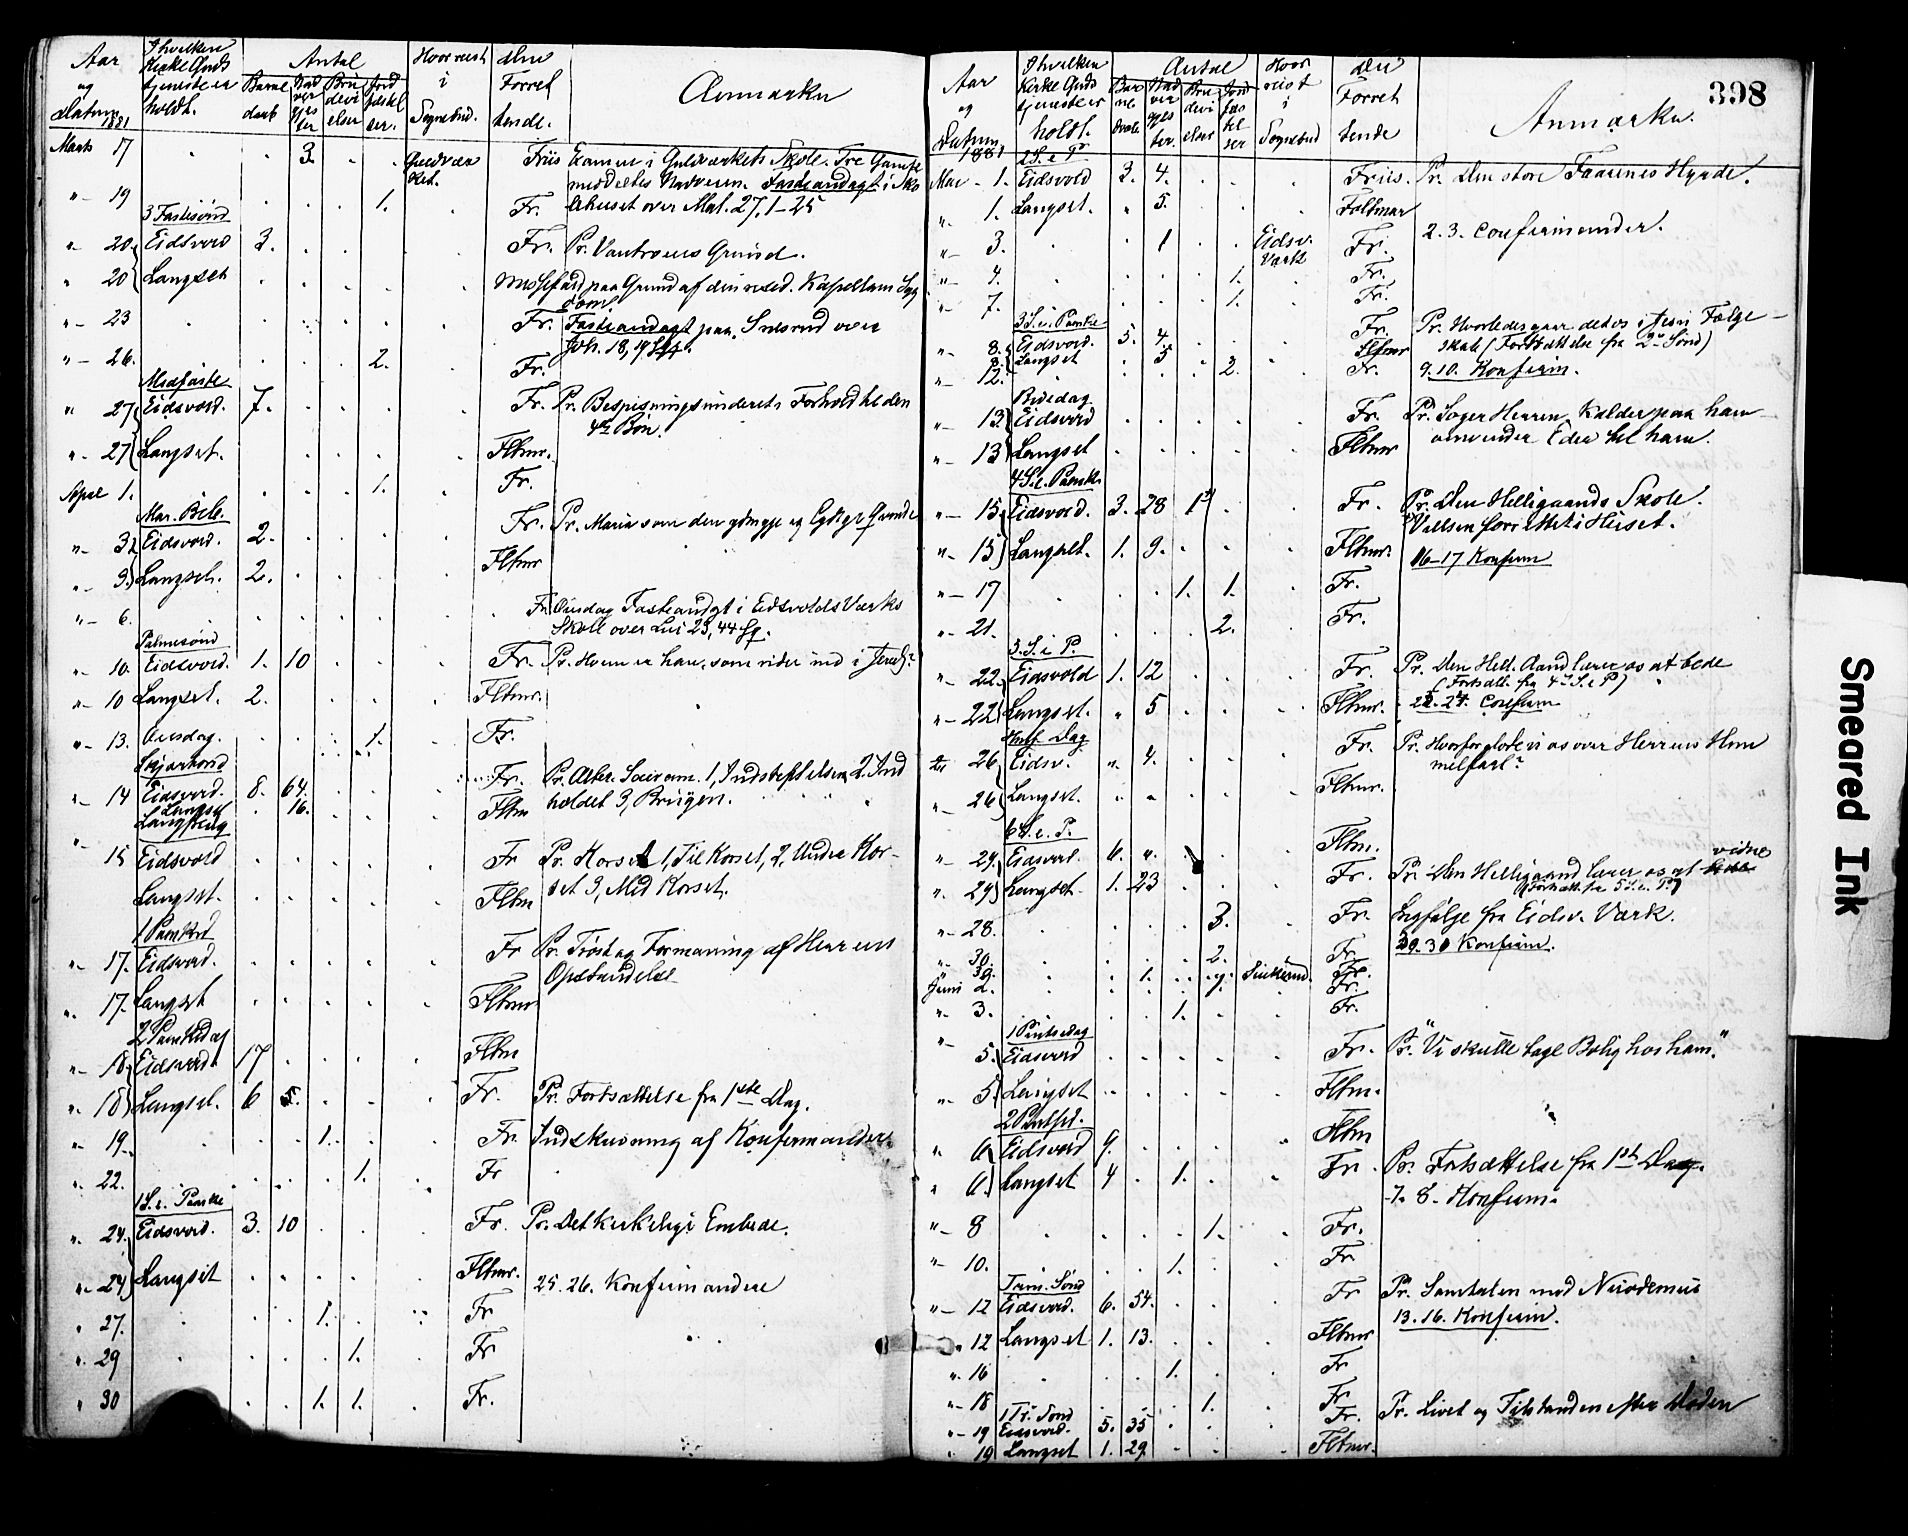 Aar og Datum 1881
I hvilken Kirke Guds tjeneste er holdt.
Antal
Barne daab
Nad ver gjes ter
Bru devi elser
Jord fæstel ser.
Hvor reist i Sognebud.
Den Forret tende.
Anmærkn
Marts 17 3. Guldvær ket. Friis Examen i Guldværkets Skole. Tre Gamle
meddeltes Nadveren. Fasteandagt i Sko
" 19 1. Fr. lehuset over Mat. 27, 1-25
3 Fastesønd
" 20 Eidsvold 3. Fr. Pr. Vantroens Grund.
" 20 Langset Messefald paa Grund af den resid. Kapellans Syg
dom
" 23 Fr. Fasteandagt paa over
Joh. 18,
" 26. 2. Fr.
Midfaste
" 27 Eidsvold. 7. Fr. Pr. Bespisningsunderets Forhold til den
4de Bøn.
" 27 Langset. Fltmr.
April 1. 1. Fr.
Mar. Beb.
" 3 Eidsvold. 2. Fr. Pr. Maria som den ydmyge og Qvinde
" 3. Langset. 2. Fltmr
" 6. Fr. Onsdag Fasteandgt i Eidsvolds Værks
Skole over Luc 23, 44 fg.
Palmesønd
" 10. Eidsvold. 1. 10 Fr. Pr. Hvem er han, som rider ind i Jerus?
" 10 Langset. 2. Fltmr.
" 13. Onsdag. 1. Fr.
Skjærtorsd
" 14 Eidsvold. 8. 64. Fr. Pr. Alter. Sacram. 1, Indstiftelsen, 2. Ind
Langset 16. Fltm holdet 3, Brugen.
Langfredag
" 15 Eidsvold Fr Pr. Korset 1, Til Korset, 2, Under Kor-
Langset. Fltm set 3, Med Korset.
1 Paaskd
" 17. Eidsvold. Fr Pr. Trøst og Formaning af Herrens
Opstandelse
" 17. Langset Fltmr
2 Paaskedag
" 18. Eidsvold 17 Fltm
" 18 Langset. 6 5. Fr. Pr. Fortsættelse fra 1ste Dag.
" 19. 1. Fr. Indskrivning af Konfirmander
" 22. 1. Fr
1 S. e. Paaske
" 24. Eidsvold. 3. 10 Fr. Pr. Det kirkelige Embede.
" 24 Langset Fltmr. 25. 26. Konfirmandere
" 27. 1. Fr
" 29 1. Fr
" 30 1. 1. Fr.
398
Aar og Datum. 1881
I hvilken Kirke Guds tjeneste er holdt.
Antal
Bar ne daab
Nad ver gjes ter.
Bru devi elser
Jord fæs tel ser
Hvor reist i Sognebud
Den Forret tende
Anmærkn.
2 S. e. P
Mai 1. Eidsvold 3. 4. Friis. Pr. Den store Faarenes Hyrde.
" 1. Langset. " 5. Feltmar
2. 3. confirmander.
" 3. 1 Eidsv. Værk Fr.
" 4. 1. Fr.
" 7. 1. Fr.
3 S. e. Paaske
" 8. Eidsvold. 5. 4. Fr. Pr. Hvorledes gaar det os i Jesu Følge-
" 8. Langset 5 Fltmr skab (Fortsættelse fra 2den Sønd)
" 12. 2. Fr. 9. 10. Konfirm.
Bededag
" 13 Eidsvold Fr. Pr. Søger Herren, Kalder paa ham
omvender Eder til ham.
" 13 Langset Fltmr
4 S. e. Paaske
" 15 Eidsvold. 3. 28 1 Fr. Pr. Den Helligaands Skole.
Vielsen forrettet i Huset.
" 15 Langset. 1. 9. Fltmr. 16-17 Konfirm
" 17 1. 1. Fr.
" 21. 2. Fr.
5. S. e P.
" 22. Eidsvold 1. 12 Fr. Pr. Den Hell. Aand lærer os at bede
(Fortsætt. fra 4de S. e P)
" 22 Langset. " 5 Fltmr. 23. 24. Confirm
Himf. Dag
" 26 Eidsv. " 4. Fr. Pr. Hvorfor glæde vi os over Herrens Him
melfart?
" 26 Langset. " " Fltmr.
6 S. e. P.
" 29. Eidsvold. 6. " Fltm.
" 29 Langset. 1. 23 Fr. Pr. Den Helligaand lærer os at vidne
(Fortsætt. fra 5 S. e. P)
" 28. 3. Fr. Ligfølge fra Eidsv. Værk.
29. 30 Konfirm.
" 30. 2. Fr.
30. 1. Fr.
Juni 2. Fr.
" 3. 1. Fr.
1 Pintsedag
" 5. Eidsvold Fr. Pr. "Vi skulle tage Bolig hos ham."
" 5 Langset Fltm.
2 Pintsd.
" 6 Eidsvold 9. Fltm
" 6. Langset 4 1. Fr. Pr. Fortsættelse fra 1ste Dag.
7. 8. Konfirm.
" 8 1. Fr.
" 10. 1. Fr
Trin. Sønd
" 12 Eidsvold. 6. 54. Fr Pr. Samtalen med Nicodemus
13. 16. Konfirm.
" 12 Langset 1. 13. Fltmr
" 16 1. Fr
" 18 1. Fr
1 Tr. Sønd
" 19 Eidsvold. 5. 35 Fr. Pr. Livet og Tilstanden efter Døden
" 19 Langset 1. 29. Fltmr.
Smeared Ink